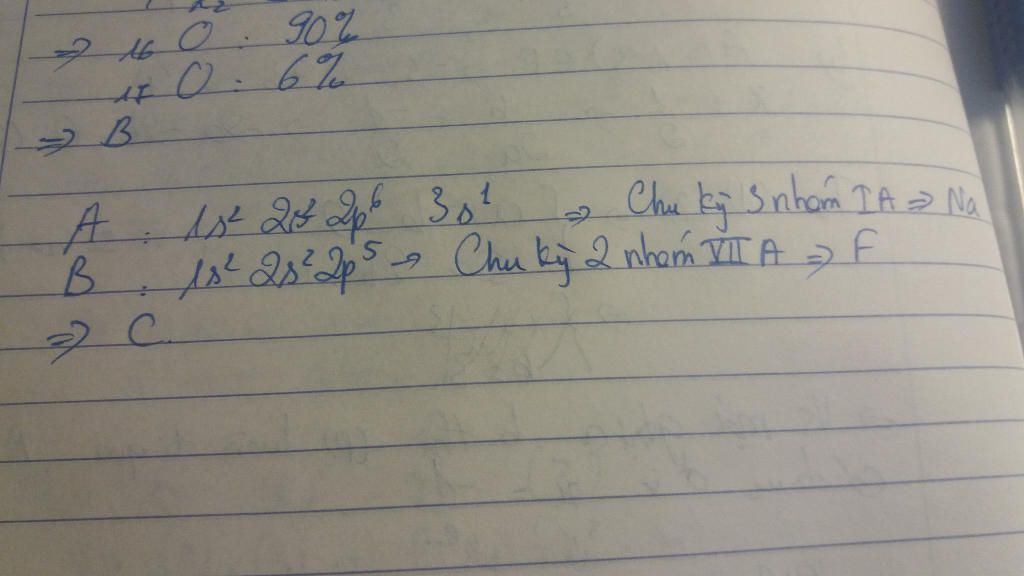 ⇒ 16 O : 90%
17 O : 6%
⇒ B
A : 1s² 2s² 2p⁶ 3s¹ ⇒ Chu kỳ 3 nhóm IA ⇒ Na
B : 1s² 2s² 2p⁵ → Chu kỳ 2 nhóm VII A ⇒ F
⇒ C